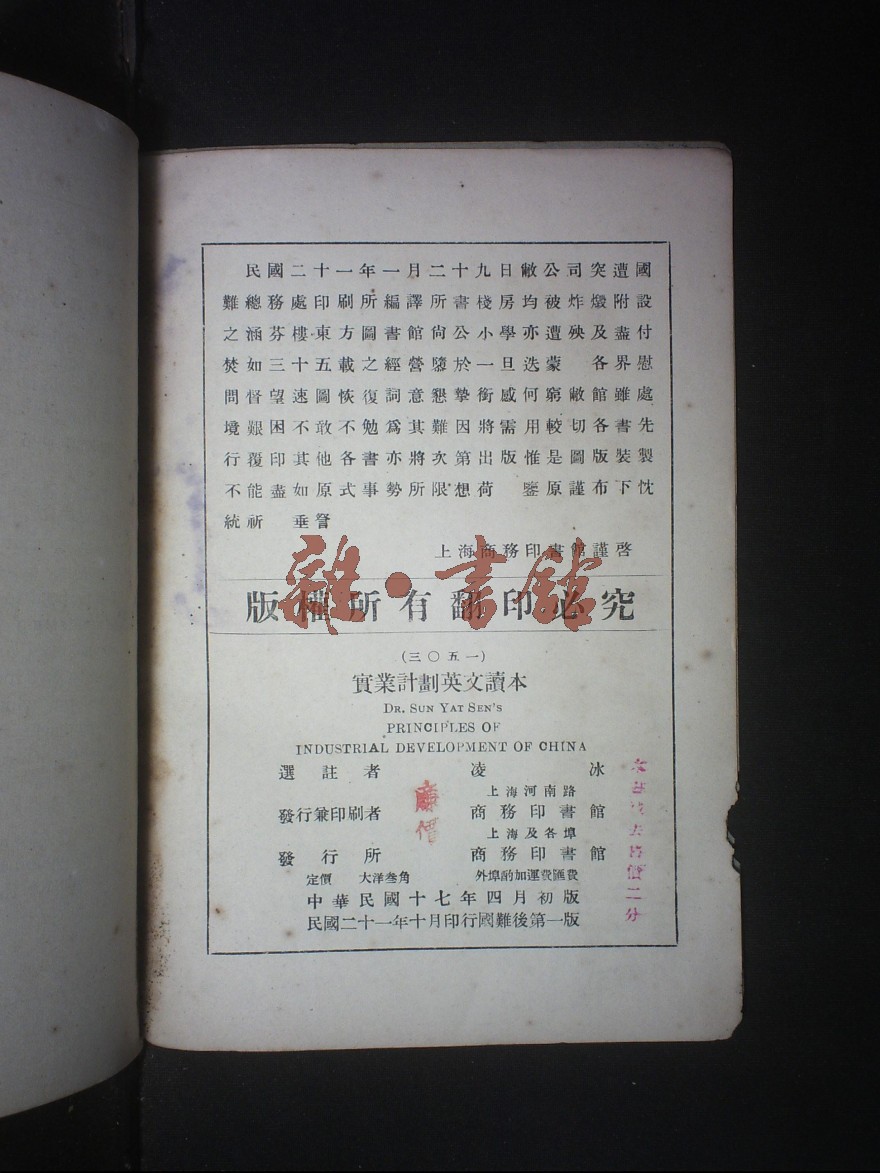 民國二十一年一月二十九日敝公司突遭國
難總務處印刷所編譯所書棧房均被炸燬附設
之涵芬樓東方圖書館尙公小學亦遭殃及盡付
焚如三十五載之經營隳於一旦迭蒙 各界慰
問督望速圖恢復詞意懇摯銜感何窮敝館雖處
境艱困不敢不勉爲其難因將需用較切各書先
行覆印其他各書亦將次第出版惟是圖版裝製
不能盡如原式事勢所限想荷 鑒原謹布下忱
統祈 垂詧
上海商務印書館謹啓
版權所有翻印必究
(三〇五一)
實業計劃英文讀本
DR. SUN YAT SEN'S
PRINCIPLES OF
INDUSTRIAL DEVELOPMENT OF CHINA
選註者 凌冰
上海河南路
發行兼印刷者 商務印書館
上海及各埠
發行所 商務印書館
定價 大洋叁角 外埠酌加運費匯費
中華民國十七年四月初版
民國二十一年十月印行國難後第一版
雜·書館
價二分